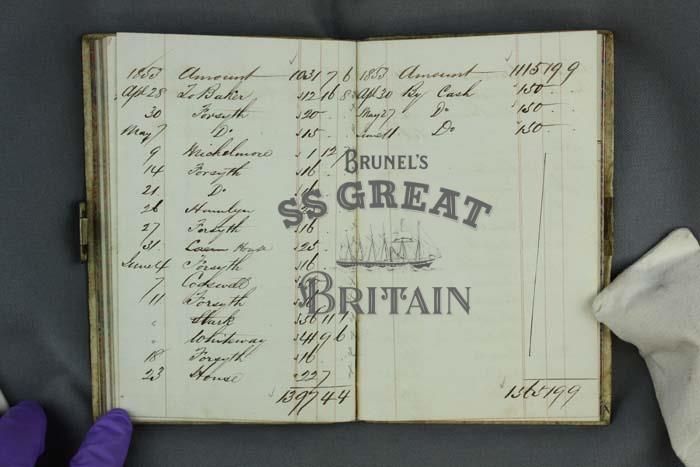 1853 Amount 1031 7 6
Apl 28 To Baker 12 16 8
30 Forsyth 20
May 7 Do 15
9 Michelmore 1 12
14 Forsyth 16
21 Do
26 Hamlyn
27 Forsyth 16
31 House 25
June 4 Forsyth 16
7 Codswell
11 Forsyth
" Stark 56 11
" Whiteway 44 9 6
18 Forsyth 16
23 House 22 7
1397 4 4
1853 Amount 1115 19 9
Apl 30 By Cash 150
May 27 Do 150
June 11 Do 150
1565 19 9
BRUNEL'S
SS GREAT
BRITAIN